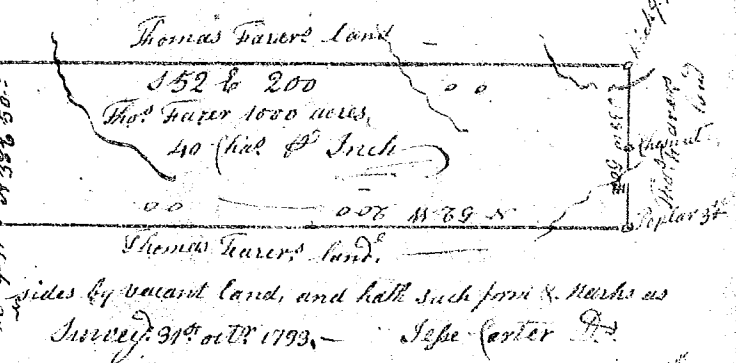 Thomas Farer's land
S 52 E 200
Thos Farer 1000 acres,
40 Chas Pr Inch
N 52 W 200
Thomas Farer's land.
Hick
Chesnut
Poplar 3x
Thos Farer's land
sides by vacant land, and hath such form & Marks as
Surveyd. 31st octbr 1793,— Jesse Carter DS